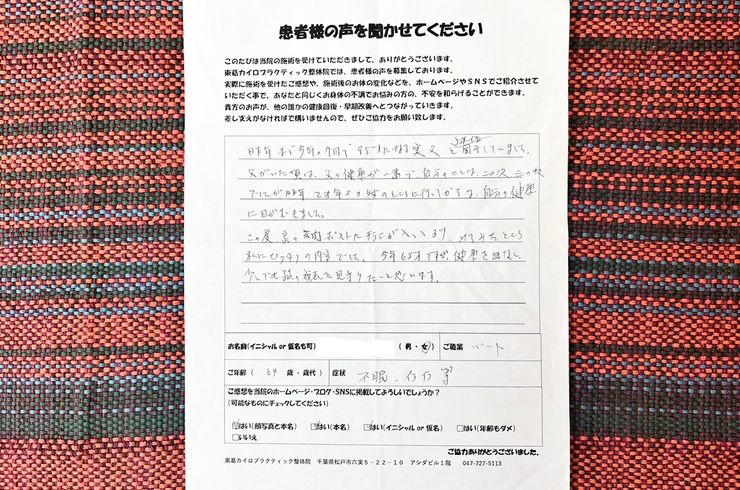 患者様の声を聞かせてください
このたびは当院の施術を受けていただきまして、ありがとうございます。
東葛カイロプラクティック整体院では、患者様の声を募集しております。
実際に施術を受けたご感想や、施術後のお体の変化などを、ホームページやSNSでご紹介させて
いただく事で、あなたと同じくお身体の不調でお悩みの方の、不安を和らげることができます。
貴方のお声が、他の誰かの健康回復・早期改善へとつながっていきます。
差し支えがなければで構いませんので、ぜひご協力をお願い致します。
昨年まで今年の7月で95才になる実父と同居していました。
父がいた頃は、父の健康が一番で、自分のことは、二の次 三の次
でしたが昨年 2才年上の姉のところに行ってからは、自分の健康
に目がむきました。
この度 家の郵便ポストに
私に の内容でした。今年65才ですが健康を
少しでも孫の成長を見守りたいと思います。
お名前(イニシャル or 仮名も可) (男・女) ご職業 パート
ご年齢 ( 64 歳・歳代) 症状 不眠、
ご感想を当院のホームページ・ブログ・SNSに掲載してよろしいでしょうか?
(可能なものにチェックしてください)
はい(顔写真と本名) はい(本名) はい(イニシャル or 仮名) はい(年齢もダメ)
いいえ
ご協力ありがとうございました。
東葛カイロプラクティック整体院 千葉県松戸市六実5-22-10 アシダビル1階 047-727-5113